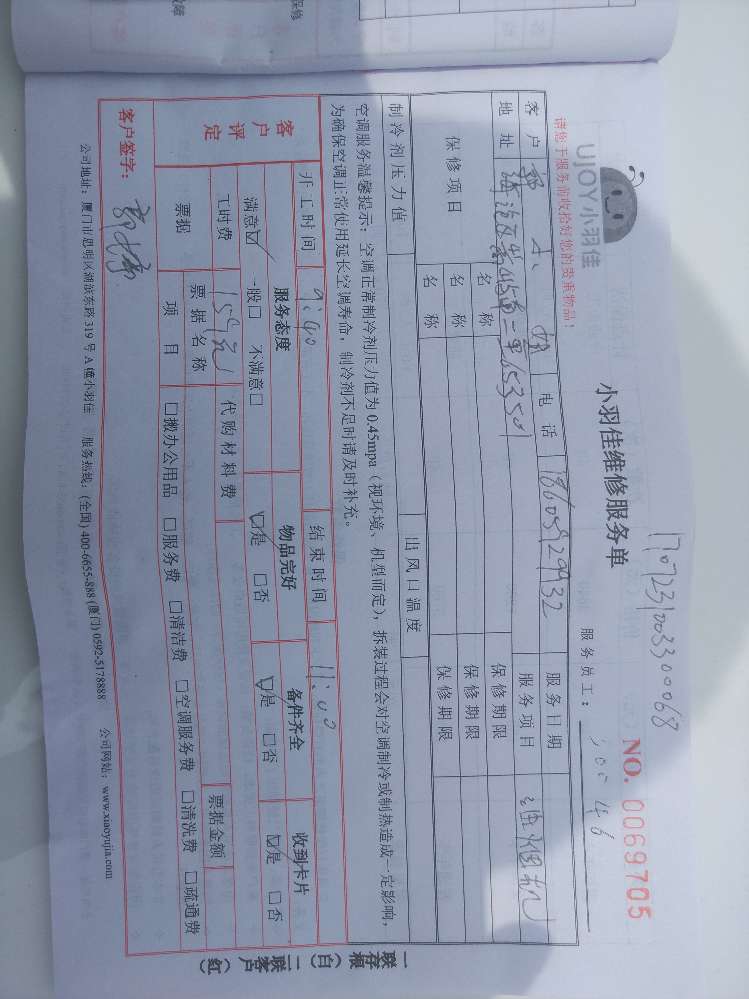 1707231003300068
UJOY小羽佳
小羽佳维修服务单
NO. 0069705
请您于服务前收拾好您的贵重物品!
服务员工:
客户 郭小姐 电话 18605929932 服务日期
地址 服务项目
保修项目 名称 保修期限
名称 保修期限
名称 保修期限
制冷剂压力值 出风口温度
空调服务温馨提示:空调正常制冷剂压力值为 0.45mpa(视环境、机型而定),拆装过程会对空调制冷或制热造成一定影响,
为确保空调正常使用延长空调寿命,制冷剂不足时请及时补充。
客户评定 开工时间 9:40 结束时间 11:00
服务态度 物品完好 备件齐全 收到卡片
满意☑ 一般□ 不满意□ ☑是 □否 ☑是 □否 ☑是 □否
工时费 159元 代购材料费 票据金额
票据 票据名称
项目 □搬办公用品 □服务费 □清洁费 □空调服务费 □清洗费 □疏通费
客户签字:
公司地址:厦门市思明区湖滨东路 319 号 A 幢小羽佳 服务热线:(全国) 400-6655-888 (厦门) 0592-5178888 公司网站:www.xiaoyujia.com
一联存根(白) 二联客户(红)